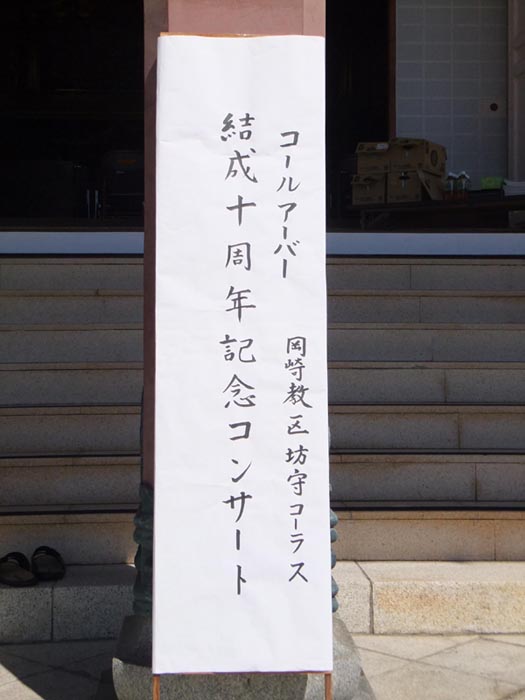 コールアーバー 岡崎教区坊守コーラス
結成十周年記念コンサート